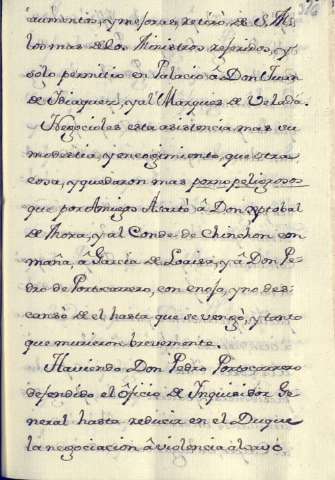 aumentos, y mejoras retiró, de S. M.
los mas de los Ministros referidos, y
sólo permitio en Palacio â Don Juan
de Idiaquez, y al Marques de Velada.
Negocioles esta asistencia mas su
modestia, y encogimiento, que otra
cosa, y quedaron mas por no peligrosos
que por Amigos. Apartò â Don Xptobal
de Mora, y al Conde de Chinchon con
maña, â Garcia de Loaisa, y â Don Pe-
dro de Portocarrero, con enojo, y no des-
cansò de el hasta que se vengò, y tanto
que murieron brevemente.
Haviendo Don Pedro Portocarrero
defendido el Oficio de Inquisidor Ge-
neral hasta reducia en el Duque
la negociacion â violencia, al cavo